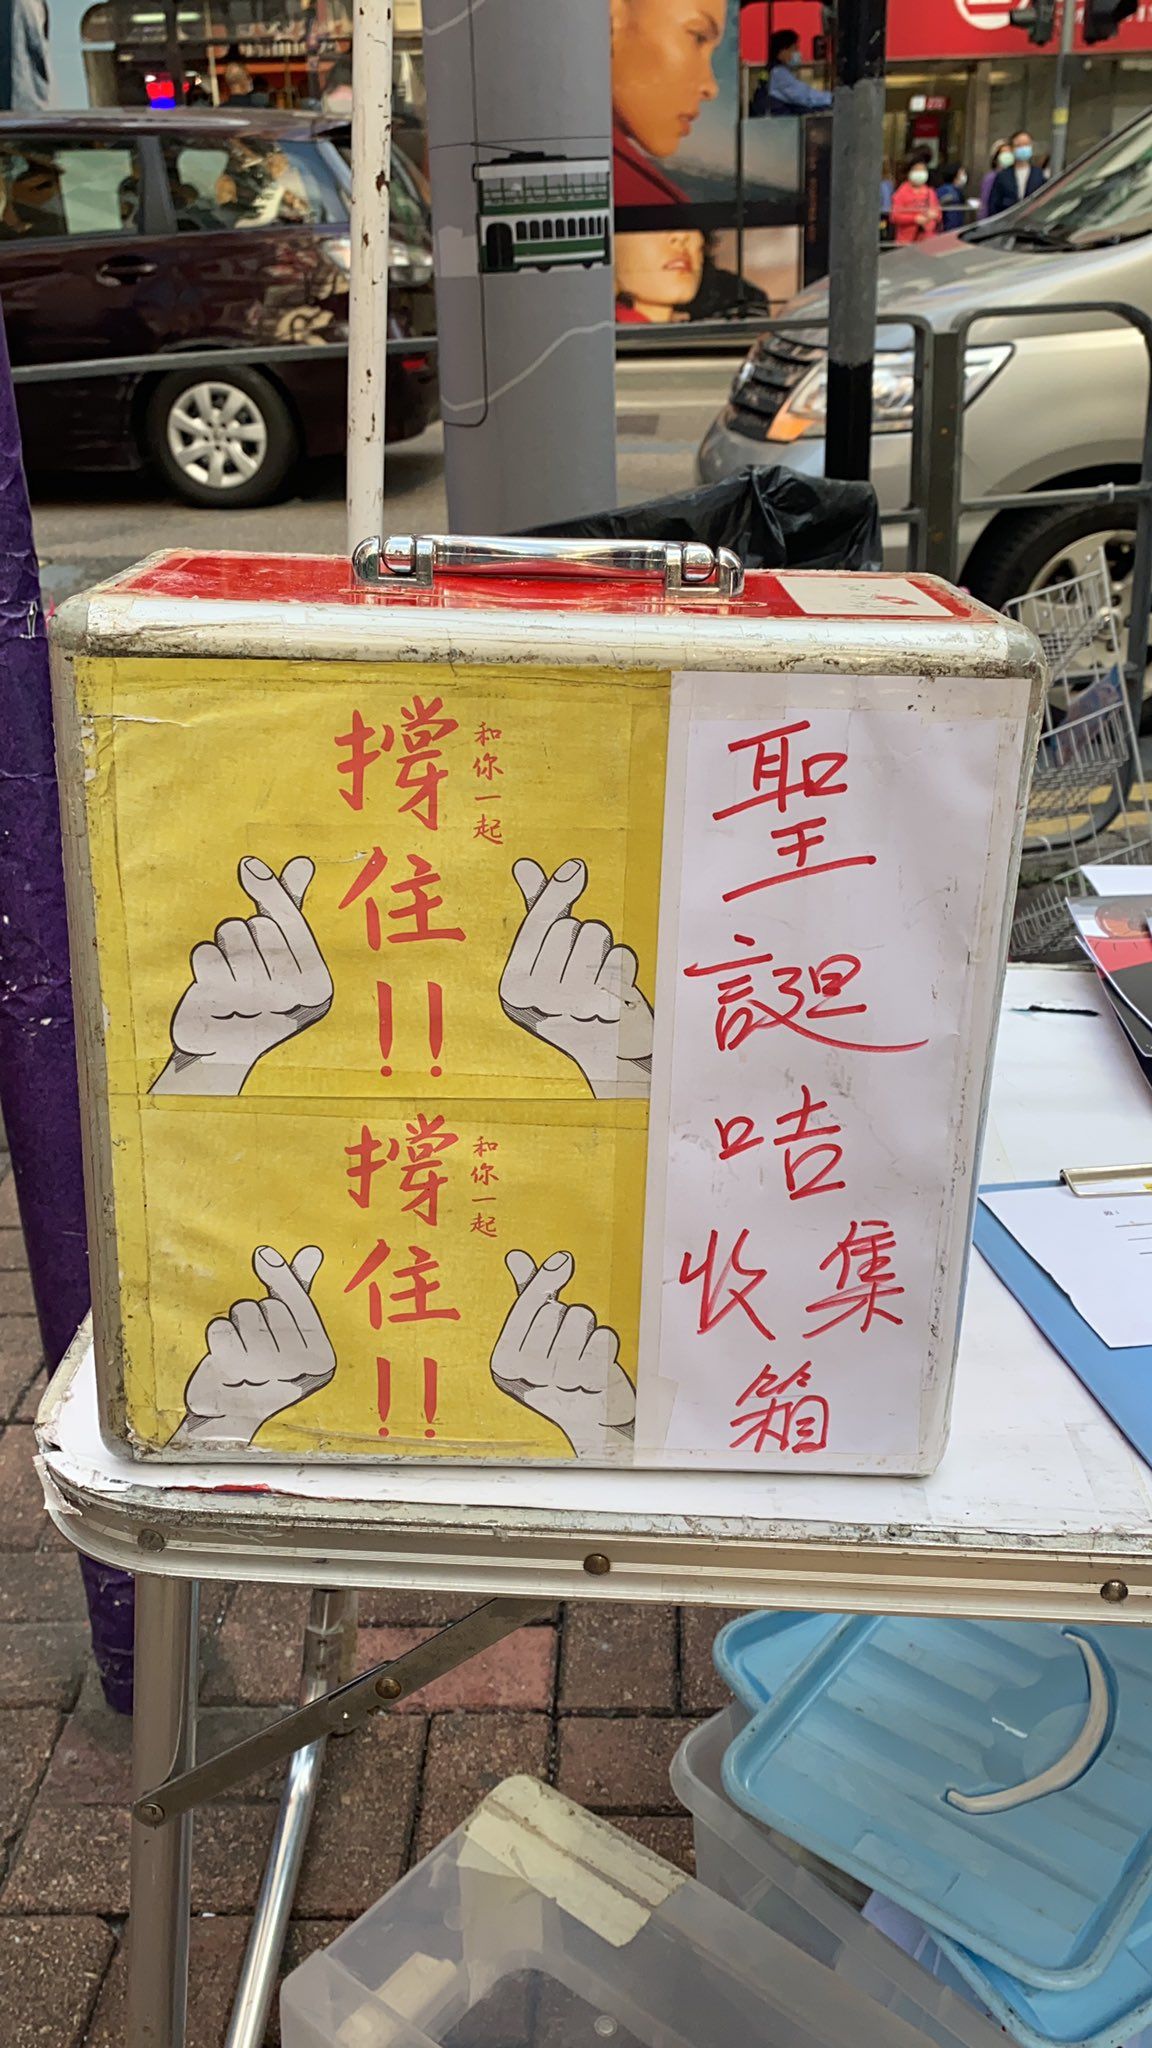 聖誕咭收集箱
和你一起
撐住!!
和你一起
撐住!!